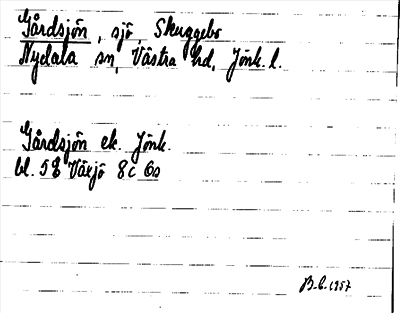 Gårdsjön, sjö, Skuggebo
Nydala sn, Västra hd, Jönk. l.
Gårdsjön ek. Jönk.
bl. 58 Växjö 8c 60
B-b. 1957